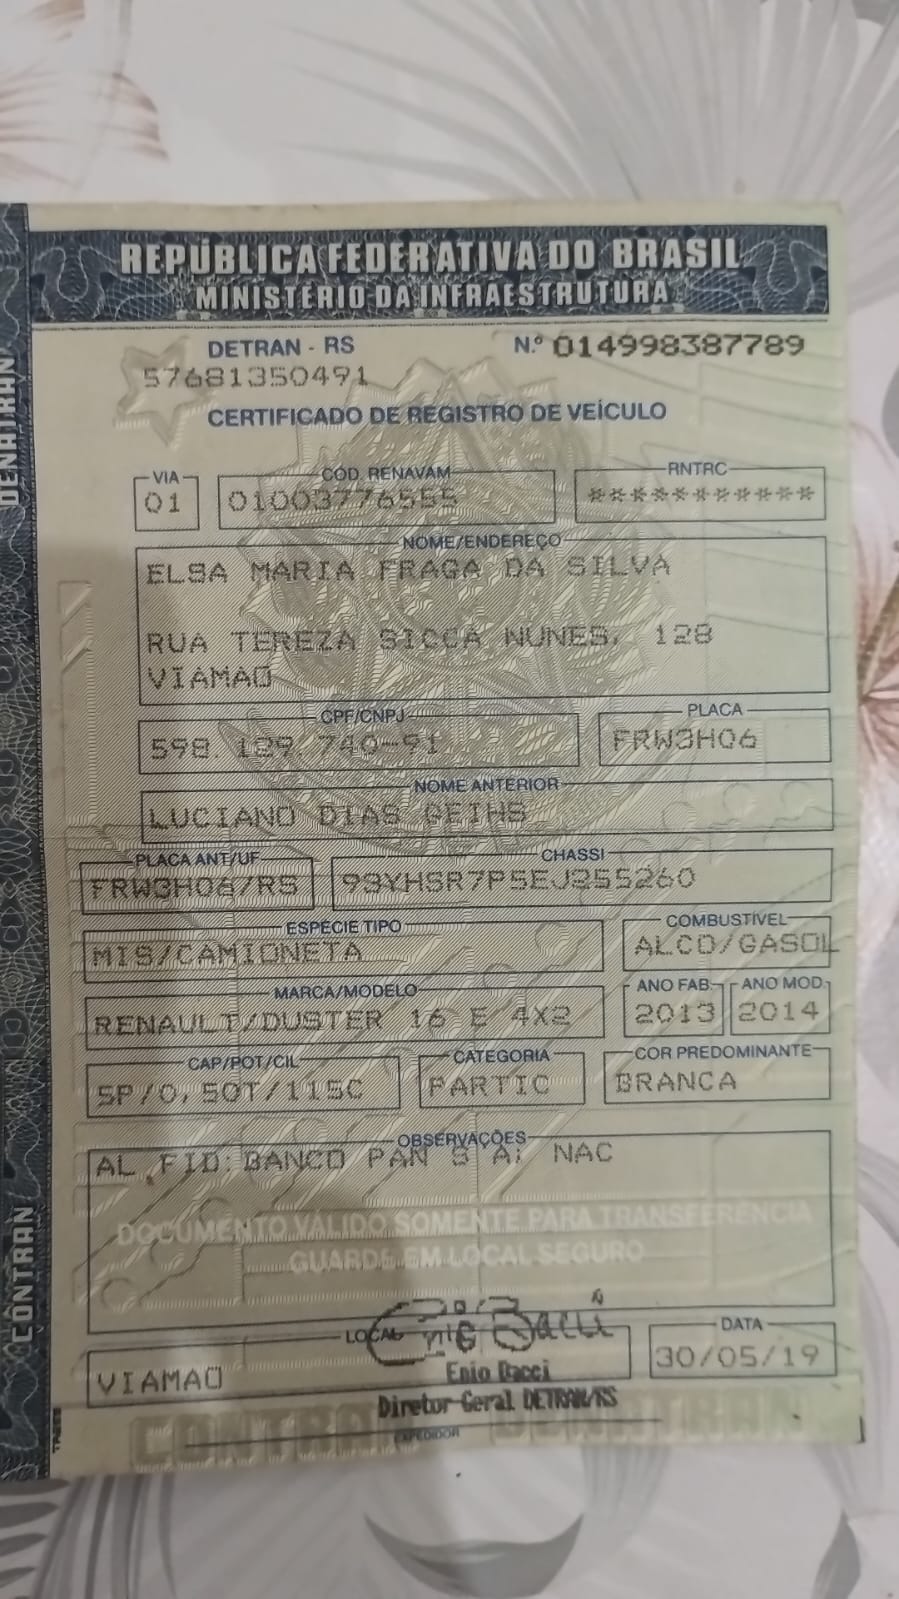 REPÚBLICA FEDERATIVA DO BRASIL
MINISTÉRIO DA INFRAESTRUTURA
DETRAN - RS Nº 014998387789
57681350491
CERTIFICADO DE REGISTRO DE VEÍCULO
VIA CÓD. RENAVAM RNTRC
01 01003776555 ***********
NOME/ENDEREÇO
ELSA MARIA FRAGA DA SILVA
RUA TEREZA SICCA NUNES, 128
VIAMAO
CPF/CNPJ PLACA
598.129.740-91 FRW3H06
NOME ANTERIOR
LUCIANO DIAS GEIHS
PLACA ANT/UF CHASSI
FRW3H06/RS 93YHSR7P5EJ255260
ESPÉCIE TIPO COMBUSTÍVEL
MIS/CAMIONETA ALCO/GASOL
MARCA/MODELO ANO FAB. ANO MOD.
RENAULT/DUSTER 16 E 4X2 2013 2014
CAP/POT/CIL CATEGORIA COR PREDOMINANTE
5P/0,50T/115C PARTIC BRANCA
OBSERVAÇÕES
AL FID: BANCO PAN S A; NAC
DOCUMENTO VÁLIDO SOMENTE PARA TRANSFERÊNCIA
GUARDE EM LOCAL SEGURO
LOCAL DATA
VIAMAO 30/05/19
Enio Bacci
Diretor-Geral DETRAN/RS
EXPEDIDOR
CONTRAN DENATRAN
DENATRAN
CONTRAN